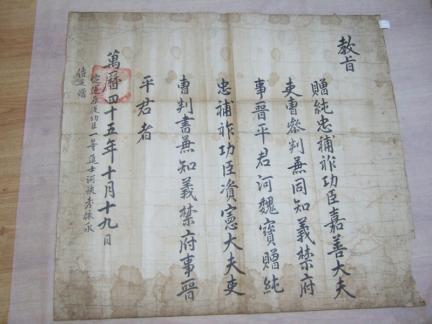 教旨
贈純忠補祚功臣嘉善大夫
吏曹參判兼同知義禁府
事晉平君河魏寶贈純
忠補祚功臣資憲大夫吏
曹判書兼知義禁府事晉
平君者
萬曆四十五年十月十九日